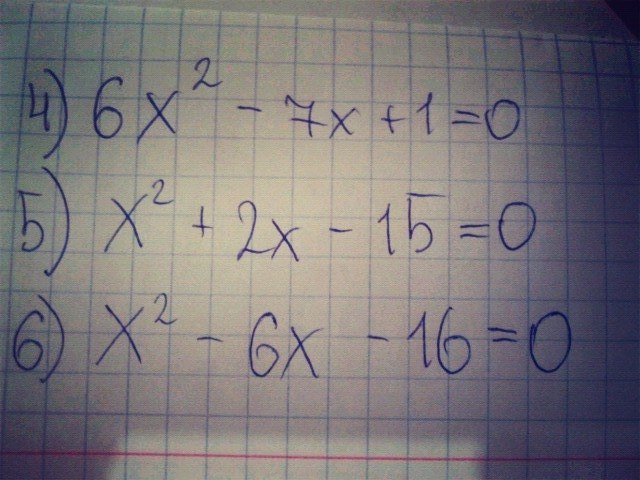 4) 6x² - 7x + 1 = 0
5) x² + 2x - 15 = 0
6) x² - 6x - 16 = 0